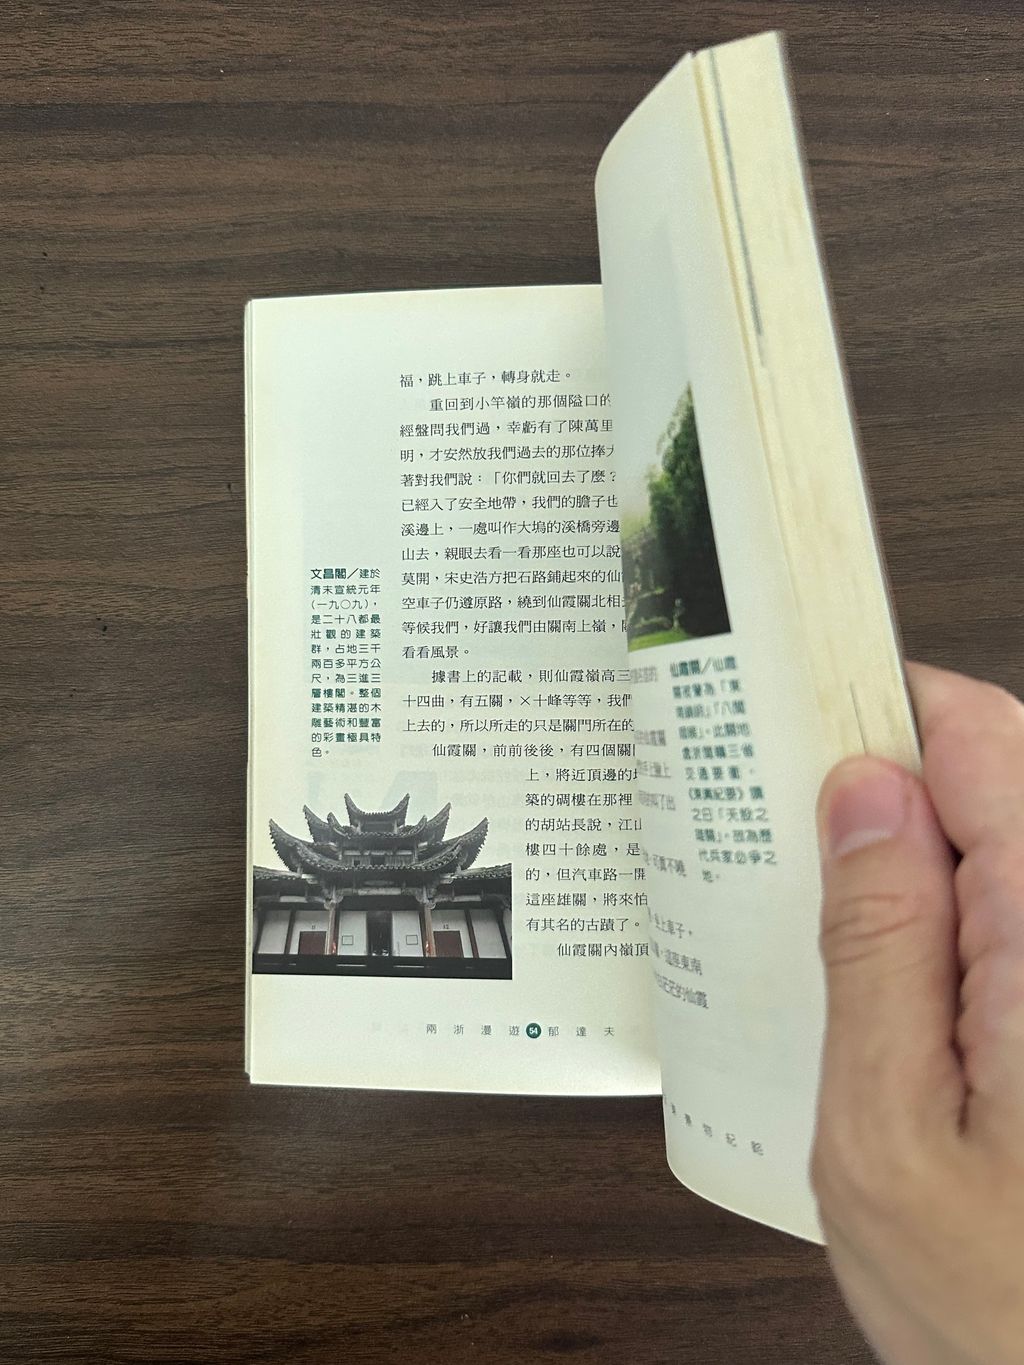 福，跳上車子，轉身就走。
重回到小竿嶺的那個隘口的
經盤問我們過，幸虧有了陳萬里
明，才安然放我們過去的那位捧
著對我們說：「你們就回去了麼？
已經入了安全地帶，我們的膽子也
溪邊上，一處叫作大塢的溪橋旁邊
山去，親眼去看一看那座也可以說
莫開，宋史浩方把石路鋪起來的仙
空車子仍遵原路，繞到仙霞關北相
等候我們，好讓我們由關南上嶺，
看看風景。
據書上的記載，則仙霞嶺高三
十四曲，有五關，×十峰等等，我們
上去的，所以所走的只是關門所在的
仙霞關，前前後後，有四個關
上，將近頂邊的
築的碉樓在那裡
的胡站長說，江山
樓四十餘處，是
的，但汽車路一開
這座雄關，將來怕
有其名的古蹟了。
仙霞關內嶺頂
文昌閣／建於
清末宣統元年
（一九〇九），
是二十八都最
壯觀的建築
群，占地三千
兩百多平方公
尺，為三進三
層樓閣。整個
建築精湛的木
雕藝術和豐富
的彩畫極具特
色。
兩浙漫遊 54 郁達夫
仙霞關／仙霞
關被譽為「東
南鎖鑰」「八閩
咽喉」。此關地
處浙閩贛三省
交通要衝，
《東輿紀要》謂
之曰「天設之
雄關」。故為歷
代兵家必爭之
地。
仙霞關
上車子，
東南
的仙霞
景物紀略